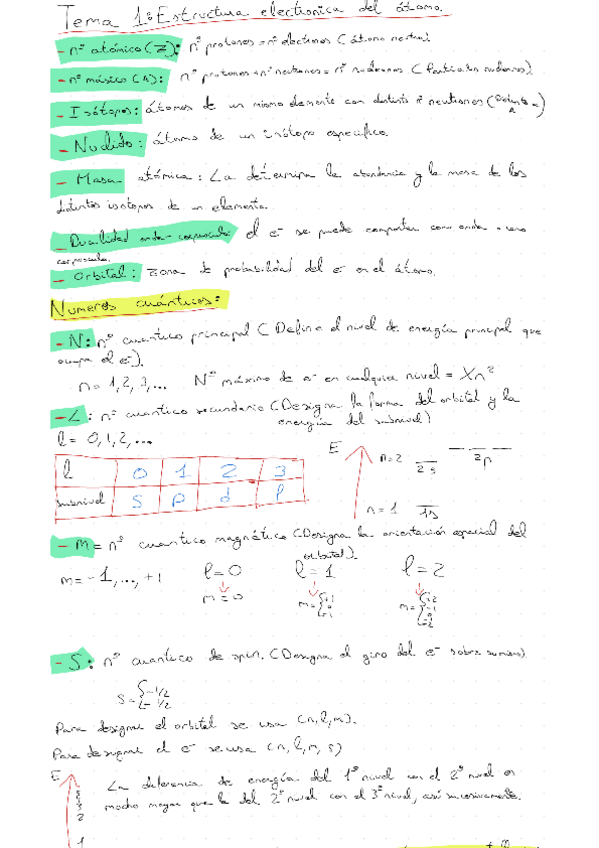 Tema 1: Estructura electronica del átomo.
- nº atómico (Z): nº protones = nº electrones (átomo neutro)
- nº másico (A): nº protones + nº neutrones = nº nucleones (Partículas nucleares)
- Isótopos: átomos de un mismo elemento con distinto nº neutrones (Distinto A)
- Nuclido: átomo de un isótopo específico.
- Masa atómica: La determina la abundancia y la masa de los
distintos isotopos de un elemento.
- Dualidad onda-corpusculo: el e- se puede comportar como onda o como
corpuscula.
- Orbital: zona de probabilidad del e- en el átomo.
Numeros cuánticos:
- N: nº cuantico principal (Define el nivel de energía principal que
ocupa el e-).
n = 1, 2, 3, ... Nº máximo de e- en cualquier nivel = Xn²
- L: nº cuantico secundario (Designa la forma del orbital y la
energía del subnivel)
l = 0, 1, 2, ...
E n=2 2s 2p
l 0 1 2 3
subnivel s p d f
n=1 1s
- M = nº cuantico magnático (Designa la orientación espacial del
orbital).
m = -1, ..., +1 l=0 l=1 l=2
m=0 m= +1 0 -1 m= +2
- S: nº cuantico de spin. (Designa el giro del e- sobre si mismo)
S = -1/2 1/2
Para designar el orbital se usa (n, l, m).
Para designar el e- se usa (n, l, m, s)
E La diferencia de energía del 1º nivel con el 2º nivel es
mucho mayor que la del 2º nivel con el 3º nivel, así sucesivamente.
2
1